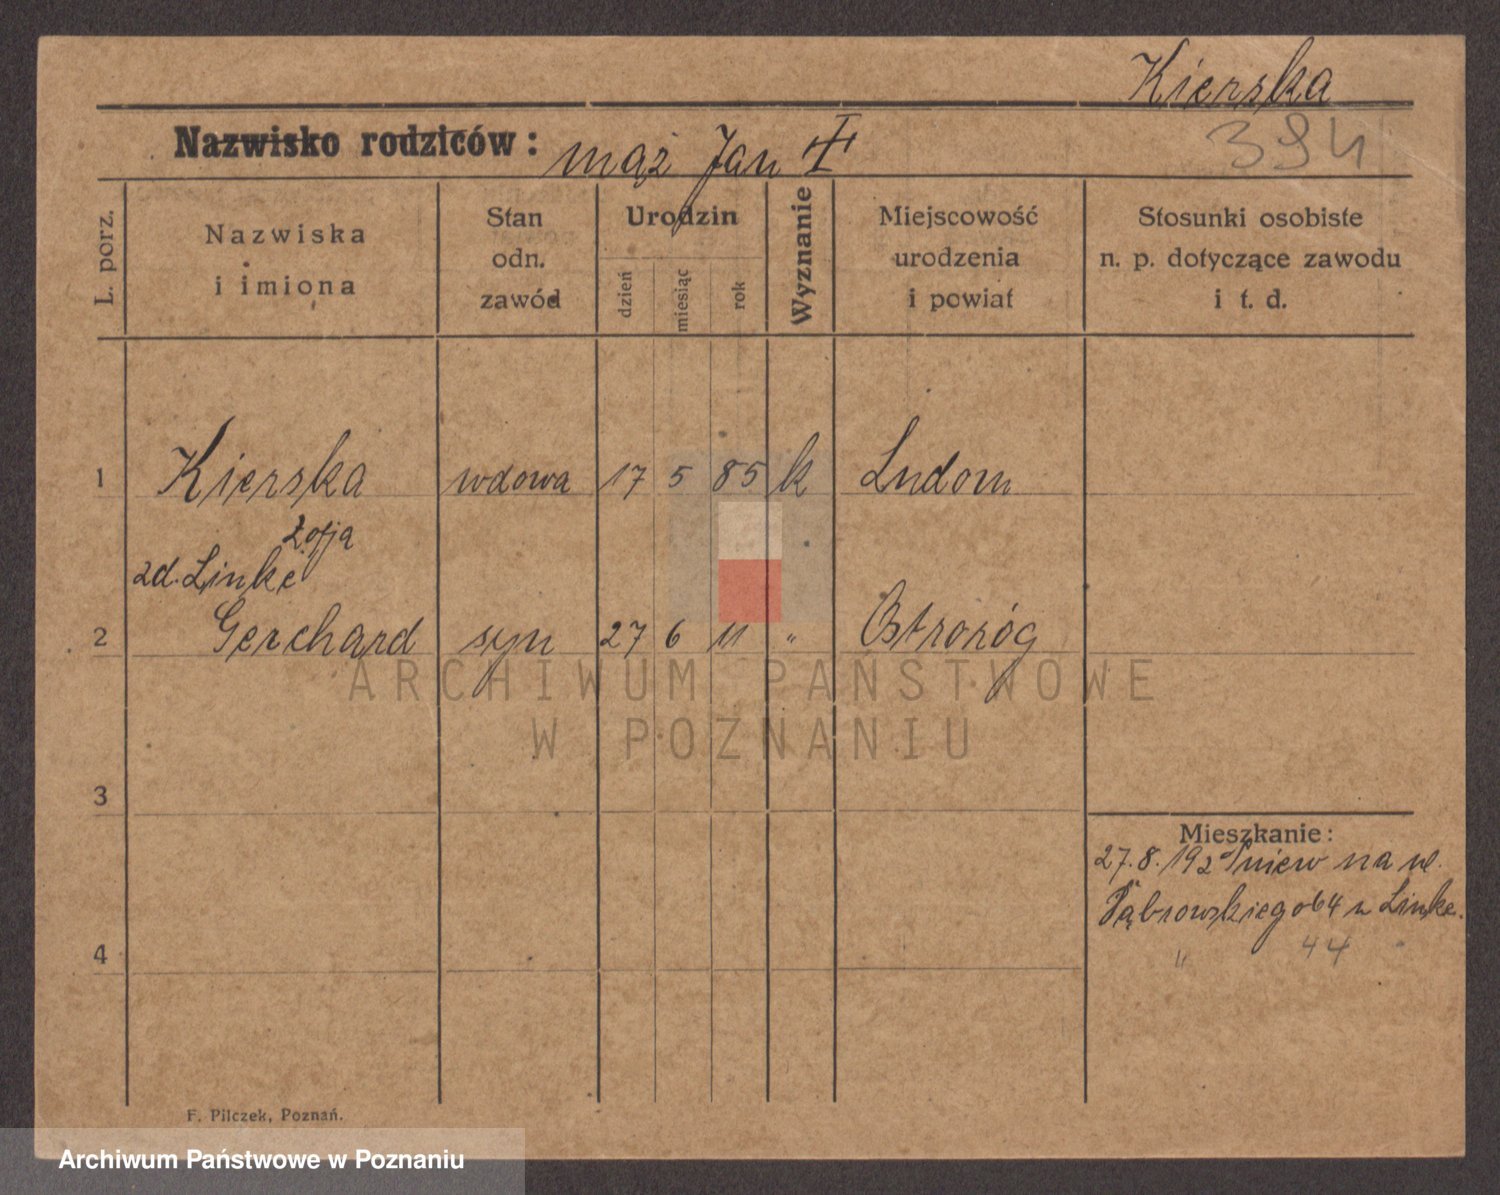 Kierska
394
Nazwisko rodziców: mąż Jan
L. porz.
Nazwiska
i imiona
Stan
odn.
zawód
Urodzin
dzień
miesiąc
rok
Wyznanie
Miejscowość
urodzenia
i powiat
Stosunki osobiste
n. p. dotyczące zawodu
i t. d.
1 Kierska wdowa 17 5 85 k Ludom
Zofja
zd. Linke
2 Gerchard syn 27 6 11 " Ostroróg
ARCHIWUM PAŃSTWOWE
W POZNANIU
3
Mieszkanie:
27.8.192 Pniew na ul.
Dąbrowskiego 64 u Linke.
4
" 44
F. Pilczek, Poznań.
Archiwum Państwowe w Poznaniu